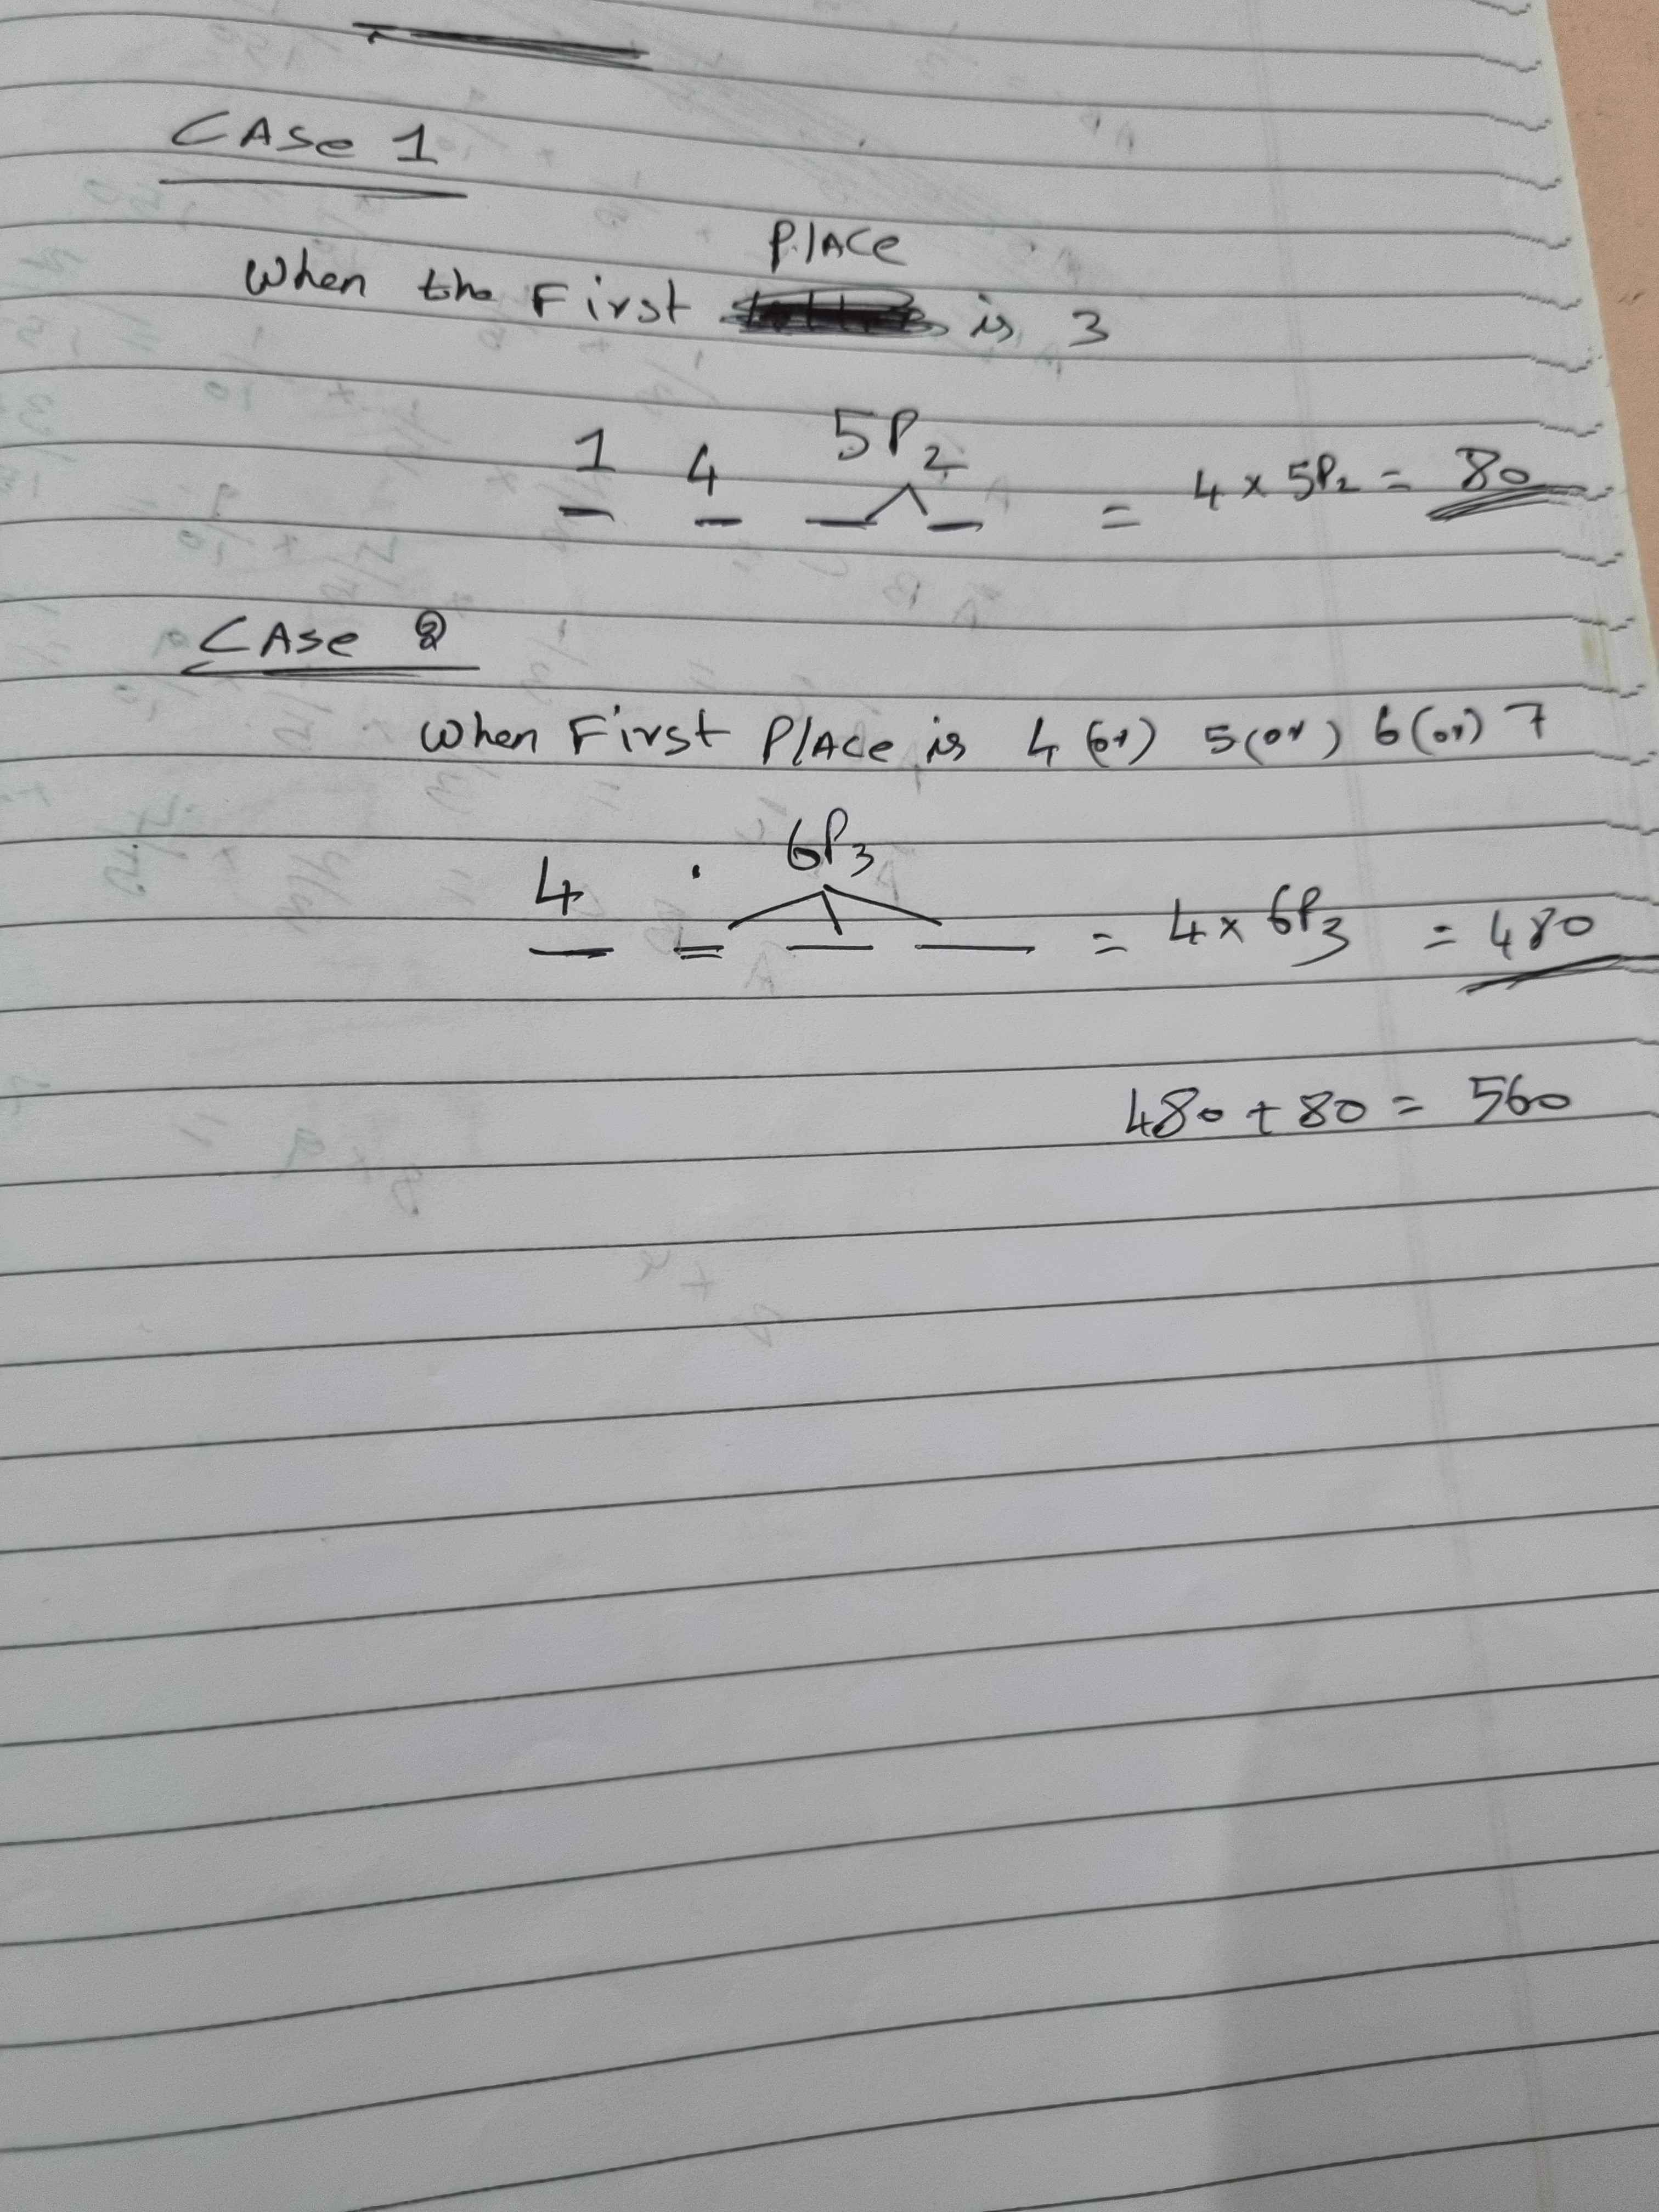 CASE 1
Place
When the First is 3
1 4 5P2
= 4 x 5P2 = 80
CASE 2
When First Place is 4 (or) 5 (or) 6 (or) 7
4 . 6P3
= 4 x 6P3 = 480
480 + 80 = 560